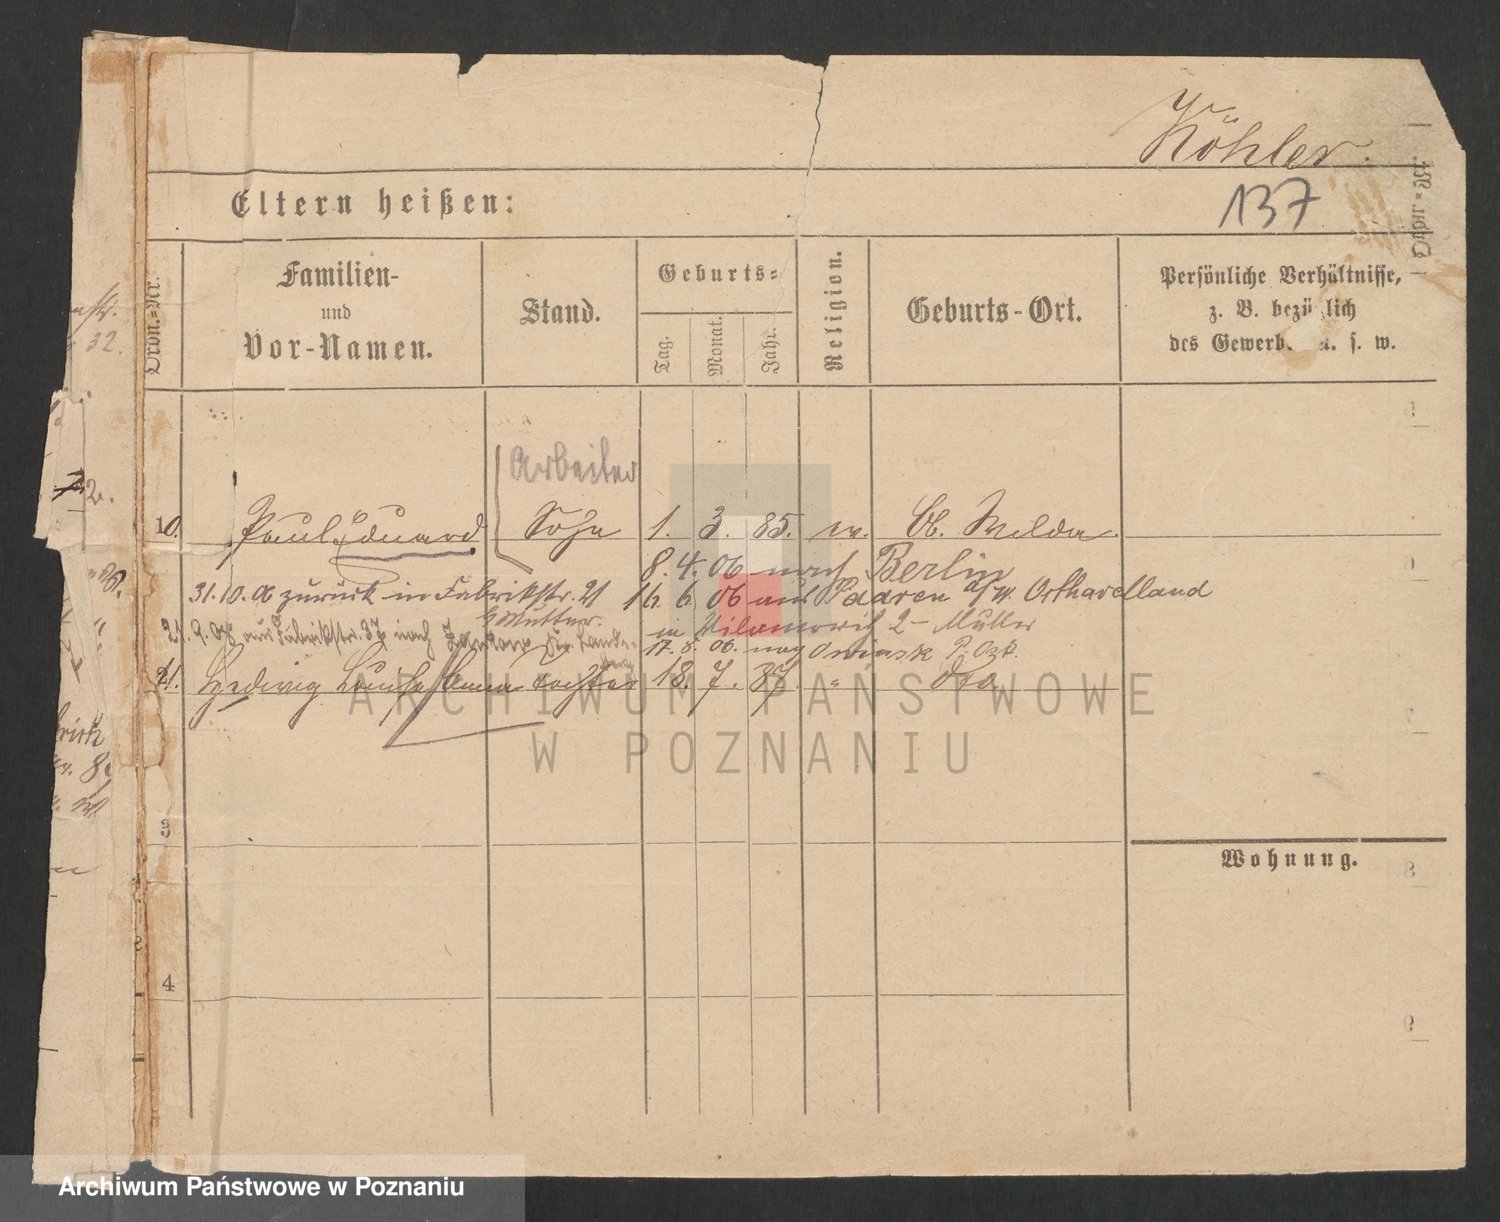 Köhler.
137
Eltern heißen:
Ordn.-Nr.
Familien-
und
Vor-Namen.
Stand.
Geburts-
Tag.
Monat.
Jahr.
Religion.
Geburts-Ort.
Persönliche Verhältnisse,
z. B. bezüglich
des Gewerb. u. s. w.
Arbeiter
10. Paul Eduard Sohn 1. 3. 85. ev. Ob. Wilda.
8. 4. 06 nach Berlin
31.10.06 zurück in Fabrikstr. 21 16. 6. 06 aus Paaren a/W. Osthavelland
b Mutter. in 2 - Müller
21. 9. 08 aus Fabrikstr. 37 nach
17. 8. 06. nach Owinsk P. Ost.
21. Hedwig Louise Anna Tochter 18. 7. 87. " dto
3
4
Wohnung.
32.
2.
ARCHIWUM PAŃSTWOWE
W POZNANIU
Archiwum Państwowe w Poznaniu